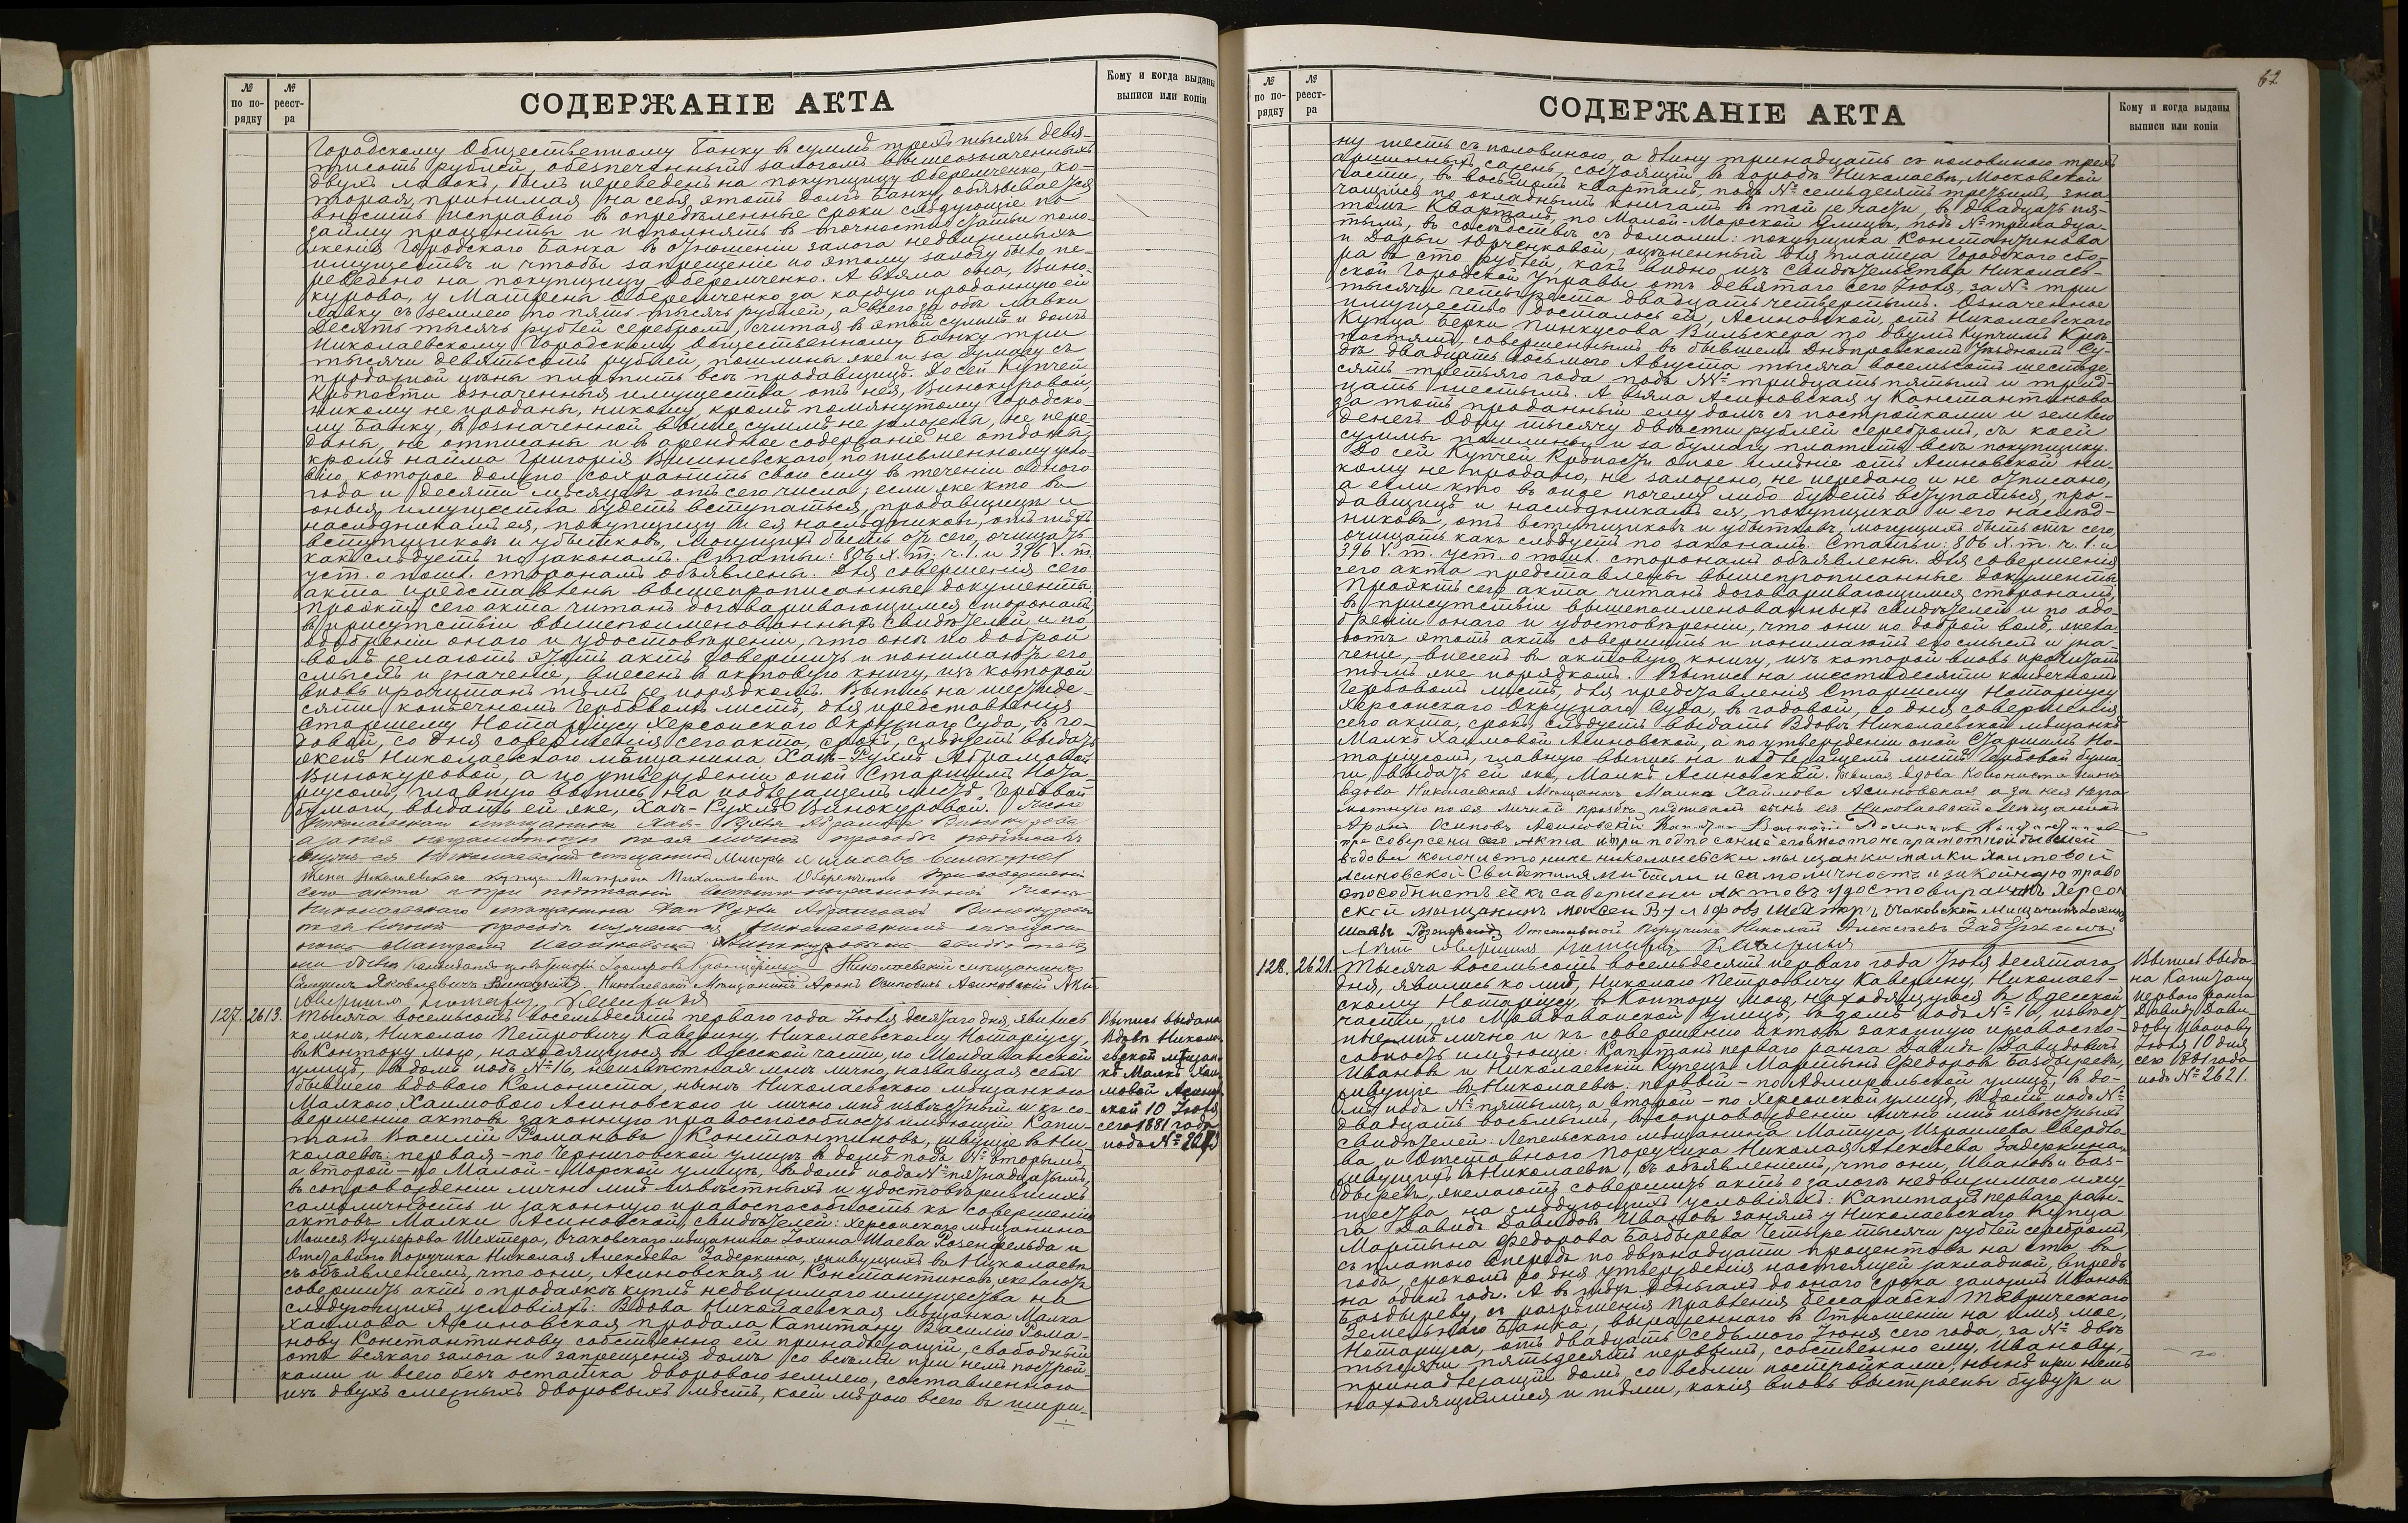 № по по-рядку
№ реест-ра
СОДЕРЖАНІЕ АКТА
Кому и когда выданы выписи или копіи
Городскому Общественному Банку въ суммѣ трехъ тысячъ девя-
тисотъ рублей, обезпеченный залогомъ вышеозначенныхъ
двухъ лавокъ, былъ переведенъ на покупщицу Оберемченко, ко-
торая, принимая на себя этотъ долгъ Банку, обязывается
вносить исправно въ опредѣленные сроки слѣдующіе по
займу проценты и исполнять въ точности статьи поло-
женія Городскаго Банка въ отношеніи залога недвижимыхъ
имуществъ и чтобы запрещеніе по этому залогу было пе-
реведено на покупщицу Оберемченко. А взяла она, Вино-
курова, у Матрены Оберемченко за каждую проданную ей
лавку съ землею по пять тысячъ рублей, а всего за обѣ лавки
десять тысячъ рублей серебромъ, считая въ этой суммѣ и долгъ
Николаевскому Городскому Общественному Банку три
тысячи девятьсотъ рублей, пошлины же и за бумагу съ
продажной цѣны платить всѣ продавщицѣ. До сей Купчей
Крѣпости означенныя имущества отъ нея, Винокуровой,
никому не проданы, никому, кромѣ помянутому Городско-
му Банку, въ означенной выше суммѣ не заложены, не пере-
даны, не отписаны и въ арендное содержаніе не отданы,
кромѣ найма Григорія Вишневскаго по письменному усло-
вію, которое должно сохранить свою силу въ теченіи одного
года и десяти мѣсяцевъ отъ сего числа; если же кто въ
оныя имущества будетъ вступаться, продавщицѣ и
наслѣдникамъ ея, покупщицу и ея наслѣдниковъ, отъ тѣхъ
вступщиковъ и убытковъ, могущихъ быть отъ сего, очищать
какъ слѣдуетъ по законамъ. Статьи: 806 X. т. ч. 1. и 396 V. т.
уст. о пошл. сторонамъ объявлены. Для совершенія сего
акта представлены вышепрописанные документы.
Проэктъ сего акта читанъ договаривающимся сторонамъ,
въ присутствіи вышепоименованныхъ свидѣтелей и по
одобреніи онаго и удостовѣреніи, что онѣ по доброй
волѣ желаютъ этотъ актъ совершить и понимаютъ его
смыслъ и значеніе, внесенъ въ актовую книгу, изъ которой
вновь прочитанъ тѣмъ же порядкомъ. Выпись на шестиде-
сяти копѣечномъ Гербовомъ листѣ, для представленія
Старшему Нотаріусу Херсонскаго Окружнаго Суда, въ го-
довой, со дня совершенія сего акта, срокъ, слѣдуетъ выдать
женѣ Николаевскаго мѣщанина Хаѣ-Рухлѣ Абрамовой
Винокуровой, а по утвержденіи оной Старшимъ Нота-
ріусомъ, главную выпись на подлежащемъ листѣ Гербовой
бумаги, выдать ей же, Хаѣ-Рухлѣ Винокуровой. Жена
Николаевскаго мѣщанина Хая-Рухля Абрамова Винокурова
а за нея неграмотную по ея личной просьбѣ подписалъ
ея Николаевскій мѣщанинъ
Жена Николаевского купца Матрена Михайлова Оберемченко При совершеніи
сего акта и при подписаніи вместо неграмотной жены
Николаевскаго мѣщанина Хаи Рухли Абрамовой Винокуровой
по ея личной просьбѣ Николаевскимъ мѣщани-
номъ
Николаевскій мѣщанинъ
Николаевскій Мѣщанинъ Аронъ Осиповичъ Асиновскій Актъ
совершилъ Нотаріусъ Каверинъ
127. 2613. Тысяча восемьсотъ восемьдесятъ перваго года Іюля десятаго дня, явились
ко мнѣ, Николаю Петровичу Каверину, Николаевскому Нотаріусу,
въ Контору мою, находящуюся въ Одесской части, по Молдаванской
улицѣ, въ домѣ подъ № 16, неизвѣстная мнѣ лично, назвавшая себя
бывшею вдовою Колониста, нынѣ Николаевскою мѣщанкою
Малкою Хаимовою Асиновскою и лично мнѣ извѣстный и къ со-
вершенію актовъ законную правоспособность имѣющій Капи-
танъ Василій Романовъ Константиновъ, живущіе въ Ни-
колаевѣ: первая - по Черниговской улицѣ въ домѣ подъ № вторымъ,
а второй - по Малой-Морской улицѣ, въ домѣ подъ № пятнадцатымъ,
въ сопровожденіи лично мнѣ извѣстныхъ и удостовѣрившихъ
самоличность и законную правоспособность къ совершенію
актовъ Малки Асиновской, свидѣтелей: Херсонскаго мѣщанина
Моисея Вульфова Шехтера, Очаковскаго мѣщанина Іохина Шаева Розенфельда и
Отставного Поручика Николая Алексѣева Задеркина, живущихъ въ Николаевѣ
съ объявленіемъ, что они, Асиновская и Константиновъ, желаютъ
совершить актъ о продажѣ куплѣ недвижимаго имущества на
слѣдующихъ условіяхъ: Вдова Николаевская мѣщанка Малка
Хаимова Асиновская продала Капитану Василію Рома-
нову Константинову собственно ей принадлежащій, свободный
отъ всякаго залога и запрещенія домъ со всѣми при немъ построй-
ками и всею безъ остатка дворовою землею, составленною
изъ двухъ смежныхъ дворовыхъ мѣстъ, коей мѣрою всего въ шири-
Выпись выдана
вдовѣ Никола-
евской мѣщан-
кѣ Малкѣ Хаи-
мовой Асинов-
ской 10 Іюля
сего 1881 года
подъ № 2613
62
№ по по-рядку
№ реест-ра
СОДЕРЖАНІЕ АКТА
Кому и когда выданы выписи или копіи
ну шесть съ половиною, а длину тринадцать съ половиною трехъ
аршинныхъ сажень, состоящій въ городѣ Николаевѣ, Московской
части, въ восьмомъ кварталѣ, подъ № семьдесятъ третьимъ, зна-
чащійся по окладнымъ книгамъ въ той же части, въ двадцать пя-
томъ кварталѣ, по Малой-Морской улицѣ, подъ № тринадца-
тымъ, въ сосѣдствѣ съ домами: покупщика Константинова
и Дарьи Юрченковой, оцѣненный для платежа Городскаго сбо-
ра въ сто рублей, какъ видно изъ свидѣтельства Николаев-
ской Городской Управы отъ девятаго сего Іюля, за № три
тысячи четыреста двадцать четвертымъ. Означенное
имущество досталось ей, Асиновской, отъ Николаевскаго
Купца Берки Пинкусова Вильскера по двумъ Купчимъ Крѣ-
постямъ, совершеннымъ въ бывшемъ Днѣпровскомъ Уѣздномъ Су-
дѣ двадцать восьмого Августа тысяча восемьсотъ шестьде-
сятъ третьяго года подъ №№ тридцать пятымъ и трид-
цать шестымъ. А взяла Асиновская у Константинова
за тотъ проданный ему домъ съ постройками и землею
денегъ одну тысячу двѣсти рублей серебромъ, съ коей
суммы пошлины и за бумагу платить всѣ покупщику.
До сей Купчей Крѣпости оное имѣніе отъ Асиновской ни-
кому не продано, не заложено, не передано и не отписано,
а если кто въ оное почему либо будетъ вступаться, про-
давщицѣ и наслѣдникамъ ея, покупщика и его наслѣд-
никовъ, отъ вступщиковъ и убытковъ, могущихъ быть отъ сего,
очищать какъ слѣдуетъ по законамъ. Статьи: 806 X. т. ч. 1. и
396 V. т. уст. о пошл. сторонамъ объявлены. Для совершенія
сего акта представлены вышепрописанные документы.
Проэктъ сего акта читанъ договаривающимся сторонамъ,
въ присутствіи вышепоименованныхъ свидѣтелей и по одо-
бреніи онаго и удостовѣреніи, что они по доброй волѣ, жела-
ютъ этотъ актъ совершить и понимаютъ его смыслъ и зна-
ченіе, внесенъ въ актовую книгу, изъ которой вновь прочитанъ
тѣмъ же порядкомъ. Выпись на шестидесяти копѣечномъ
Гербовомъ листѣ, для представленія Старшему Нотаріусу
Херсонскаго Окружнаго Суда, въ годовой, со дня совершенія
сего акта, срокъ, слѣдуетъ выдать Вдовѣ Николаевской мѣщанкѣ
Малкѣ Хаимовой Асиновской, а по утвержденіи оной Старшимъ Но-
таріусомъ, главную выпись на подлежащемъ листѣ Гербовой бума-
ги, выдать ей же, Малкѣ Асиновской. Бывшая вдова Колониста нынѣ
вдова Николаевская Мѣщанка Малка Хаимова Асиновская а за нея негра-
мотную по ея личной просьбѣ подписалъ сынъ ея Николаевскій Мѣщанинъ
Аронъ Осиповъ Асиновскій Капитанъ Василій Романовъ Константиновъ
при совершени сего акта и при подписание его вместо неграмотной бывшей
вдови колонисто ныне николаевски мещанки малки хаимовой
Асиновской Свидетилями были и самоличность и законную право
способность её к савершени актовъ удостовираимъ Херсон
ской мещанинъ Моисеи Вулфовъ Шехтеръ, Очаковской Мищанинъ
Шаевъ Розенфельдъ Отставной Поручикъ Николай Алексѣевъ Задеркинъ
Актъ совершилъ Нотаріусъ Каверинъ
128. 2621. Тысяча восемьсотъ восемьдесятъ перваго года Іюля десятаго
дня, явились ко мнѣ, Николаю Петровичу Каверину, Николаев-
скому Нотаріусу, въ Контору мою, находящуюся въ Одесской
части, по Молдаванской улицѣ, въ домѣ подъ № 16, извѣст-
ные мнѣ лично и къ совершенію актовъ законную правоспо-
собность имѣющіе: Капитанъ перваго ранга Давидъ Давидовичъ
Ивановъ и Николаевскій Купецъ Мартынъ Федоровъ Баздыревъ,
живущіе въ Николаевѣ: первый - по Адмиральской улицѣ, въ до-
мѣ подъ № пятымъ, а второй - по Херсонской улицѣ, въ домѣ подъ №
двадцать восьмымъ, въ сопровожденіи лично мнѣ извѣстныхъ
свидѣтелей: Лепельскаго мѣщанина Матуса Израилева Свердло-
ва и Отставного Поручика Николая Алексѣева Задеркина,
живущихъ въ Николаевѣ, съ объявленіемъ, что они, Ивановъ и Баз-
дыревъ, желаютъ совершить актъ о залогѣ недвижимаго иму-
щества, на слѣдующихъ условіяхъ: Капитанъ перваго ран-
га Давидъ Давидовъ Ивановъ занялъ у Николаевскаго Купца
Мартына Федорова Баздырева четыре тысячи рублей серебромъ,
съ платою впередъ по двѣнадцати процентовъ на сто въ
годъ, срокомъ со дня утвержденія настоящей закладной, впредь
на одинъ годъ. А въ тѣхъ деньгахъ до онаго срока заложилъ Ивановъ
Баздыреву, съ разрѣшенія Правленія Бессарабско Таврическаго
Земельнаго Банка, выраженнаго въ Отношеніи на имя мое,
Нотаріуса, отъ двадцать седьмого Іюня сего года, за № двѣ
тысячи пятьдесятъ первымъ, собственно ему, Иванову,
принадлежащій домъ со всѣми постройками, нынѣ при немъ
находящимися, и тѣми, какія вновь выстроены будутъ и
Выпись выда-
на Капитану
перваго ранга
Давиду Дави-
дову Иванову
Іюля 10 дня
сего 1881 года
подъ № 2621.